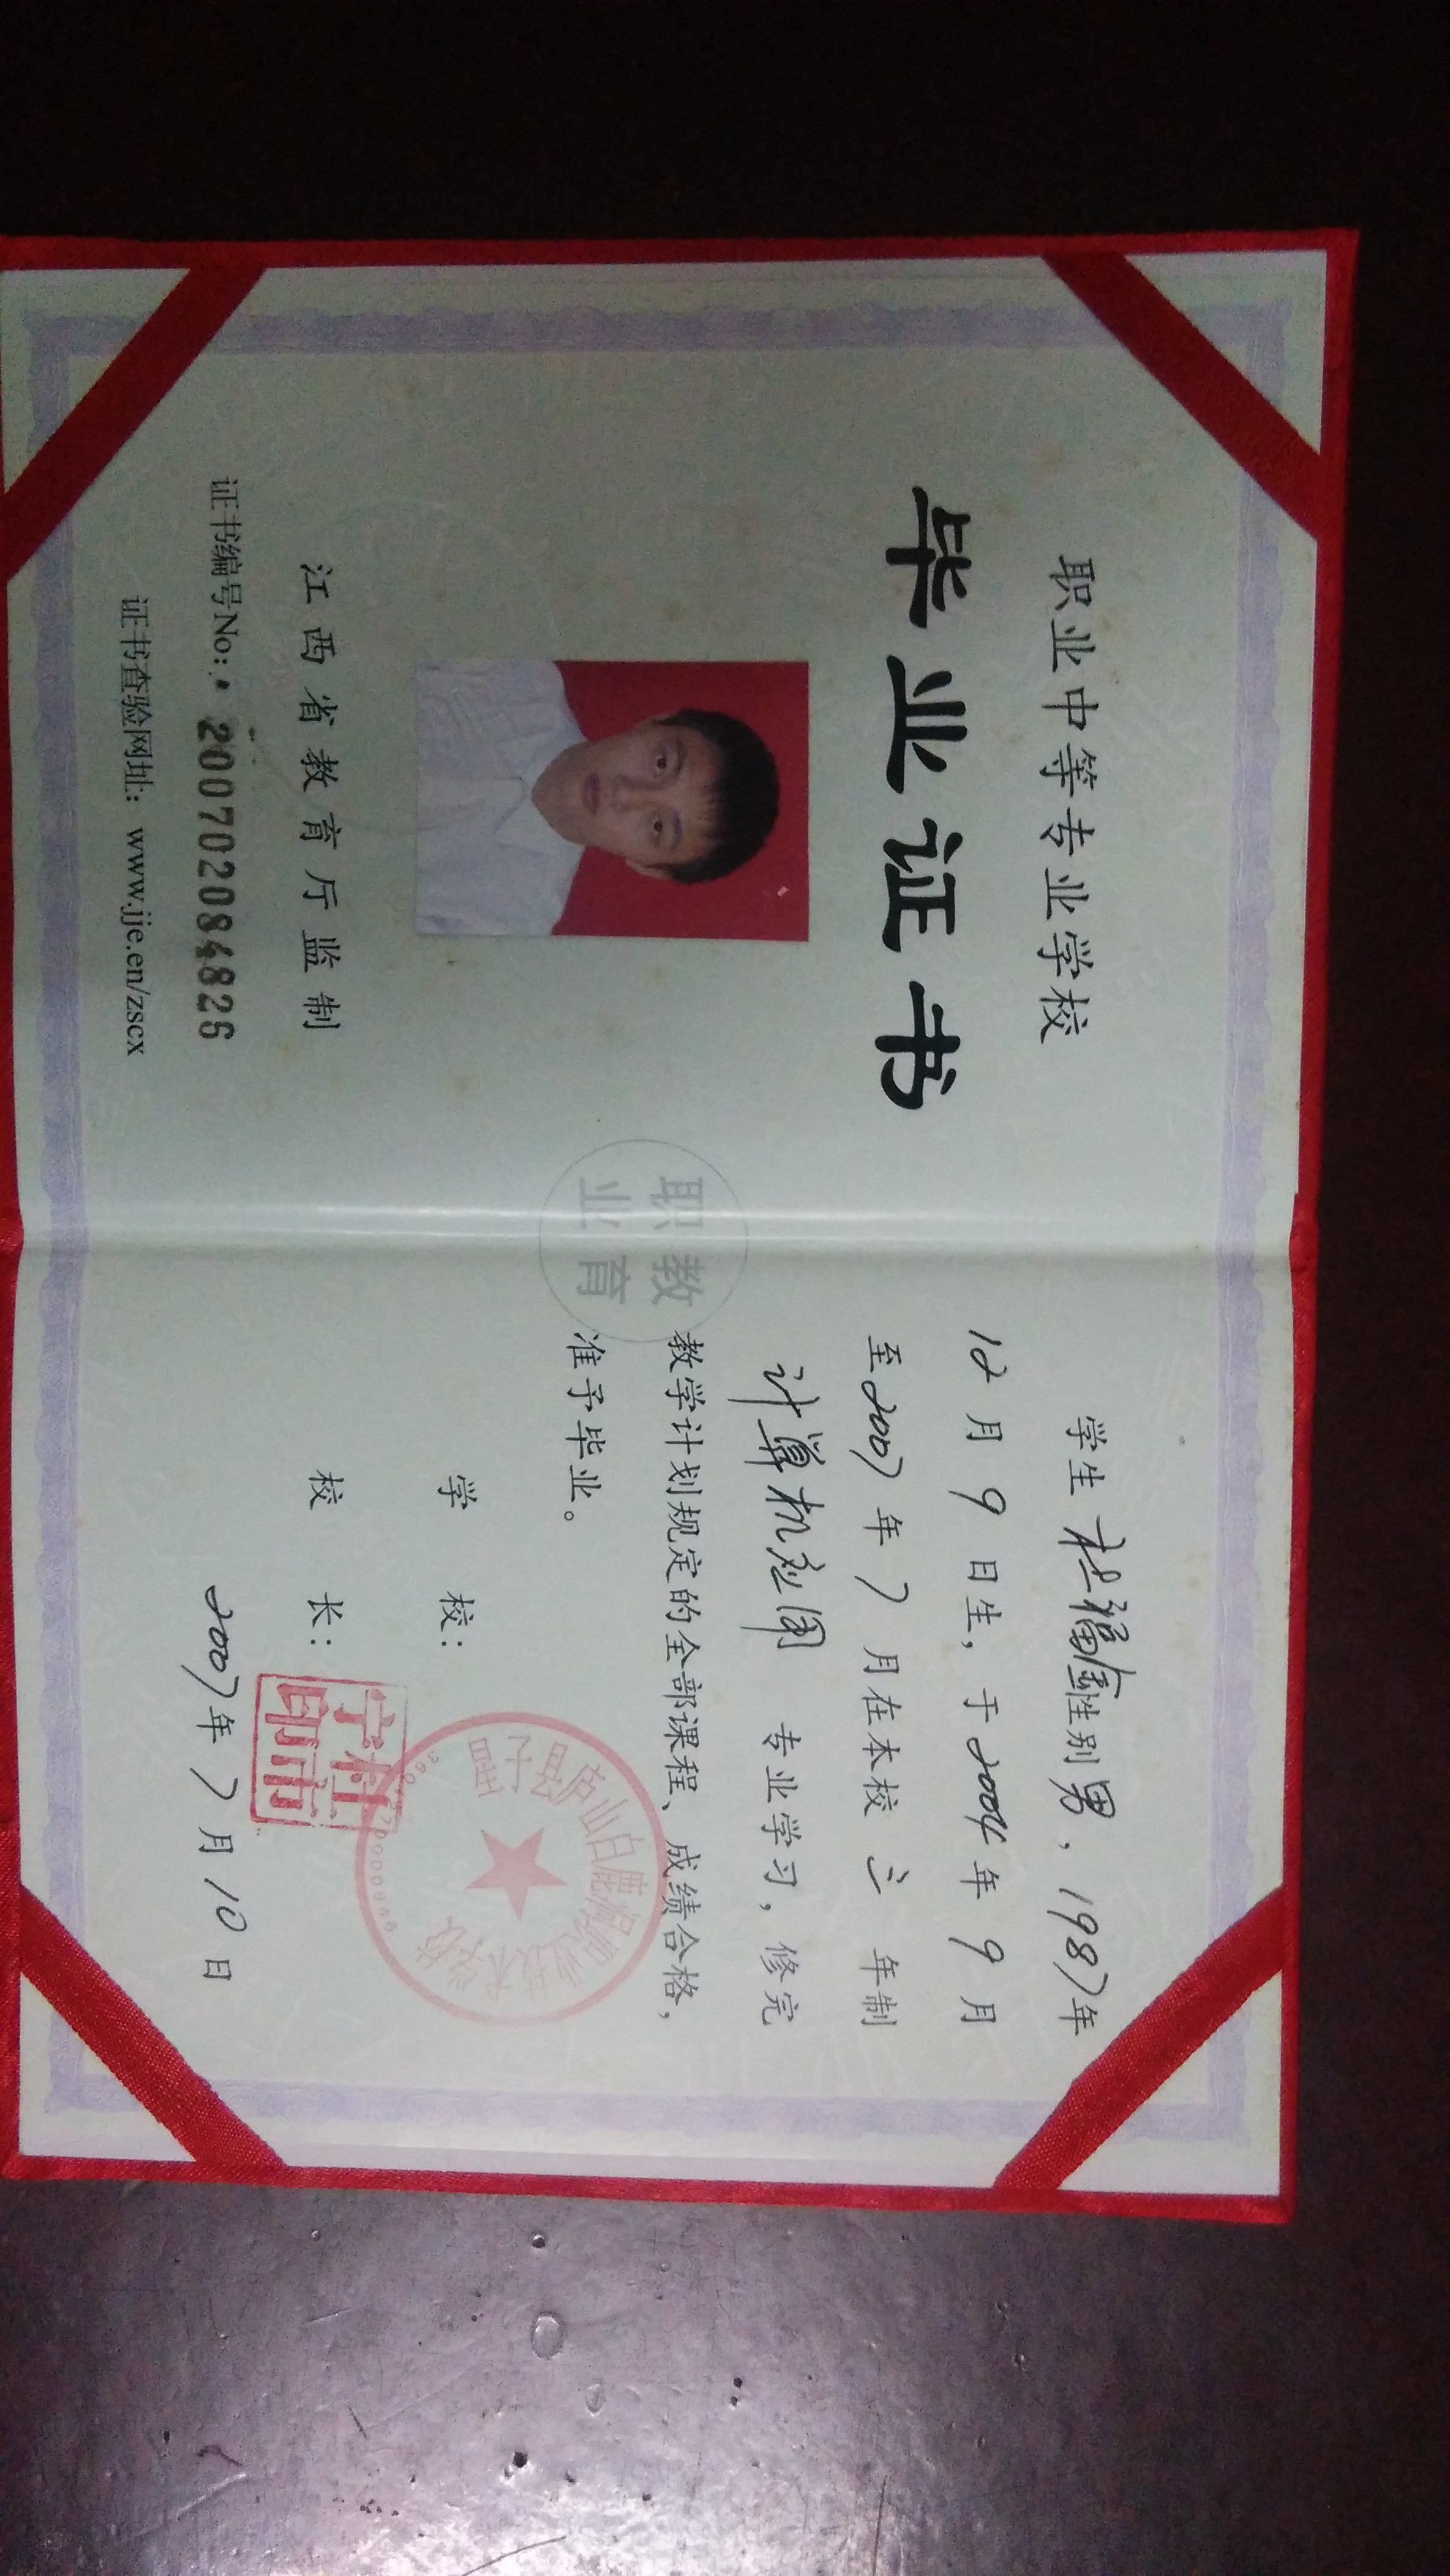 职业中等专业学校
毕业证书
江西省教育厅监制
证书编号No: 200702084826
证书查验网址：www.jje.en/zscx
职教
业育
学生 杜福金 性别 男，1987年
12月9日生，于2004年9月
至2007年7月在本校 三 年制
计算机应用 专业学习，修完
教学计划规定的全部课程、成绩合格，
准予毕业。
学 校：
星子县庐山白鹿洞职业技术学校
校 长：
2007年7月10日